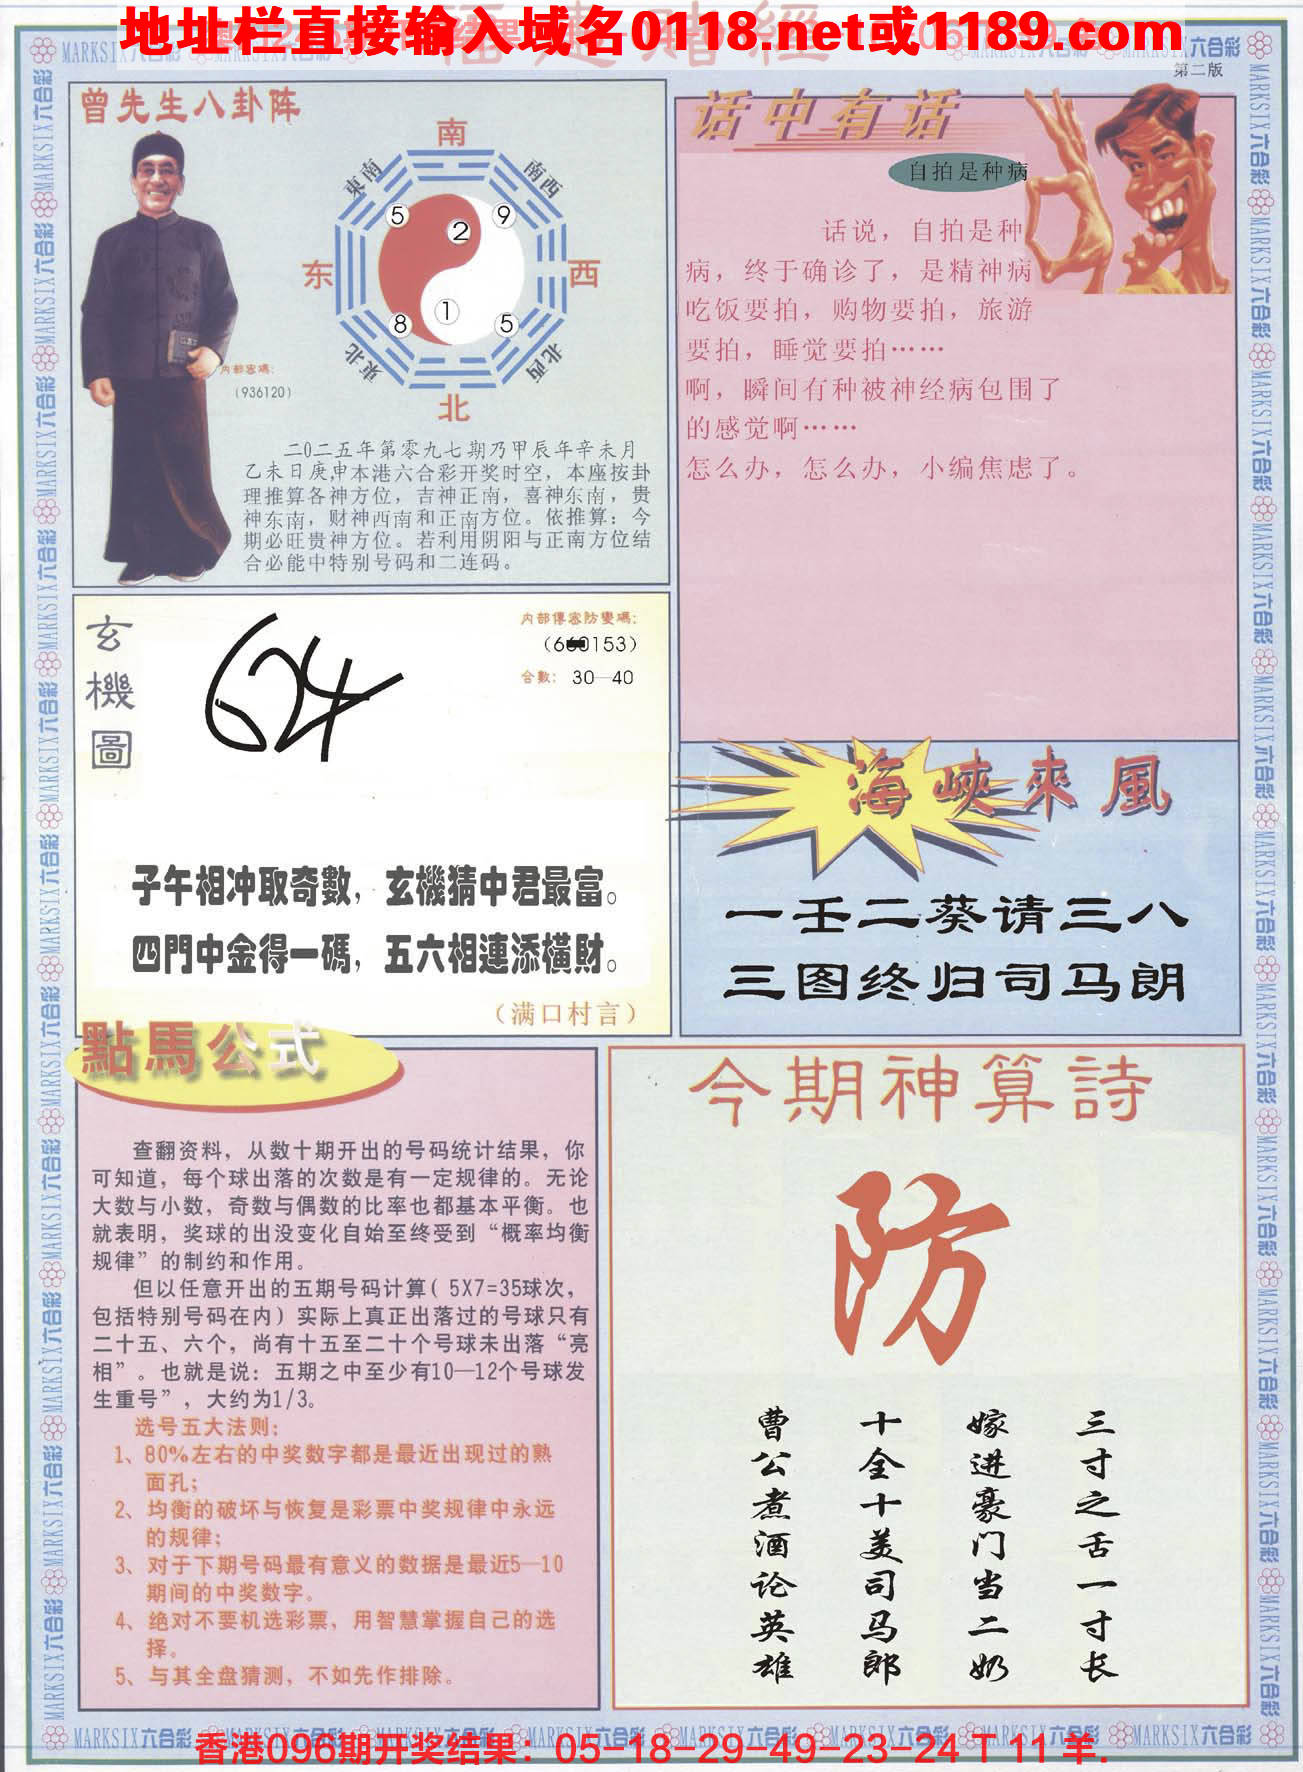 地址栏直接输入域名0118.net或1189.com
第二版
曾先生八卦阵
南
東南
南西
5
9
2
东
西
1
8
5
東北
北西
北
内部密碼:
(936120)
二0二五年第零九七期乃甲辰年辛未月
乙未日庚申本港六合彩开奖时空，本座按卦
理推算各神方位，吉神正南，喜神东南，贵
神东南，财神西南和正南方位。依推算：今
期必旺贵神方位。若利用阴阳与正南方位结
合必能中特别号码和二连码。
话中有话
自拍是种病
话说，自拍是种
病，终于确诊了，是精神病
吃饭要拍，购物要拍，旅游
要拍，睡觉要拍……
啊，瞬间有种被神经病包围了
的感觉啊……
怎么办，怎么办，小编焦虑了。
玄機圖
内部傳密防變碼:
153)
合數: 30—40
子午相冲取奇數，玄機猜中君最富。
四門中金得一碼，五六相連添橫財。
（满口村言）
海峽來風
一壬二葵请三八
三图终归司马朗
點馬公式
查翻资料，从数十期开出的号码统计结果，你
可知道，每个球出落的次数是有一定规律的。无论
大数与小数，奇数与偶数的比率也都基本平衡。也
就表明，奖球的出没变化自始至终受到“概率均衡
规律”的制约和作用。
但以任意开出的五期号码计算( 5X7=35球次，
包括特别号码在内）实际上真正出落过的号球只有
二十五、六个，尚有十五至二十个号球未出落“亮
相”。也就是说：五期之中至少有10—12个号球发
生重号”，大约为1/3。
选号五大法则:
1、80%左右的中奖数字都是最近出现过的熟
面孔;
2、均衡的破坏与恢复是彩票中奖规律中永远
的规律;
3、对于下期号码最有意义的数据是最近5—10
期间的中奖数字。
4、绝对不要机选彩票，用智慧掌握自己的选
择。
5、与其全盘猜测，不如先作排除。
今期神算詩
防
三寸之舌一寸长
嫁进豪门当二奶
十全十美司马郎
曹公煮酒论英雄
MARKSIX六合彩
香港096期开奖结果：05-18-29-49-23-24 T 11 羊.